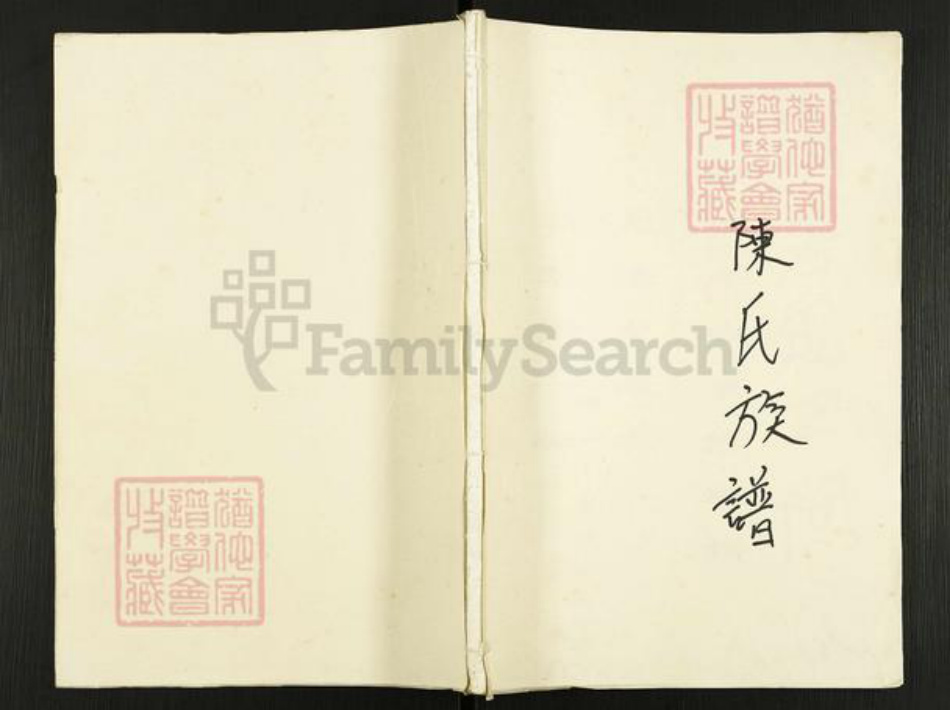 陳氏族譜
猶他家
譜學會
收藏
FamilySearch
猶他家
譜學會
收藏